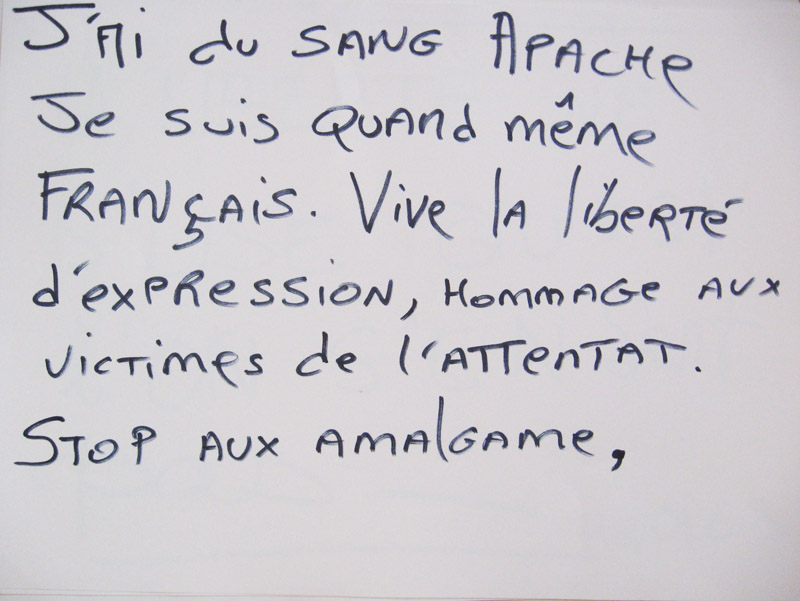 J'Ai du SANG APACHe
Je suis QUANd même
FRANÇAis. Vive lA libeRTé
d'exPRessiON, HOmmAGe AUX
victimes de l'ATTenTAT.
STOP AUX AmAlGAme,